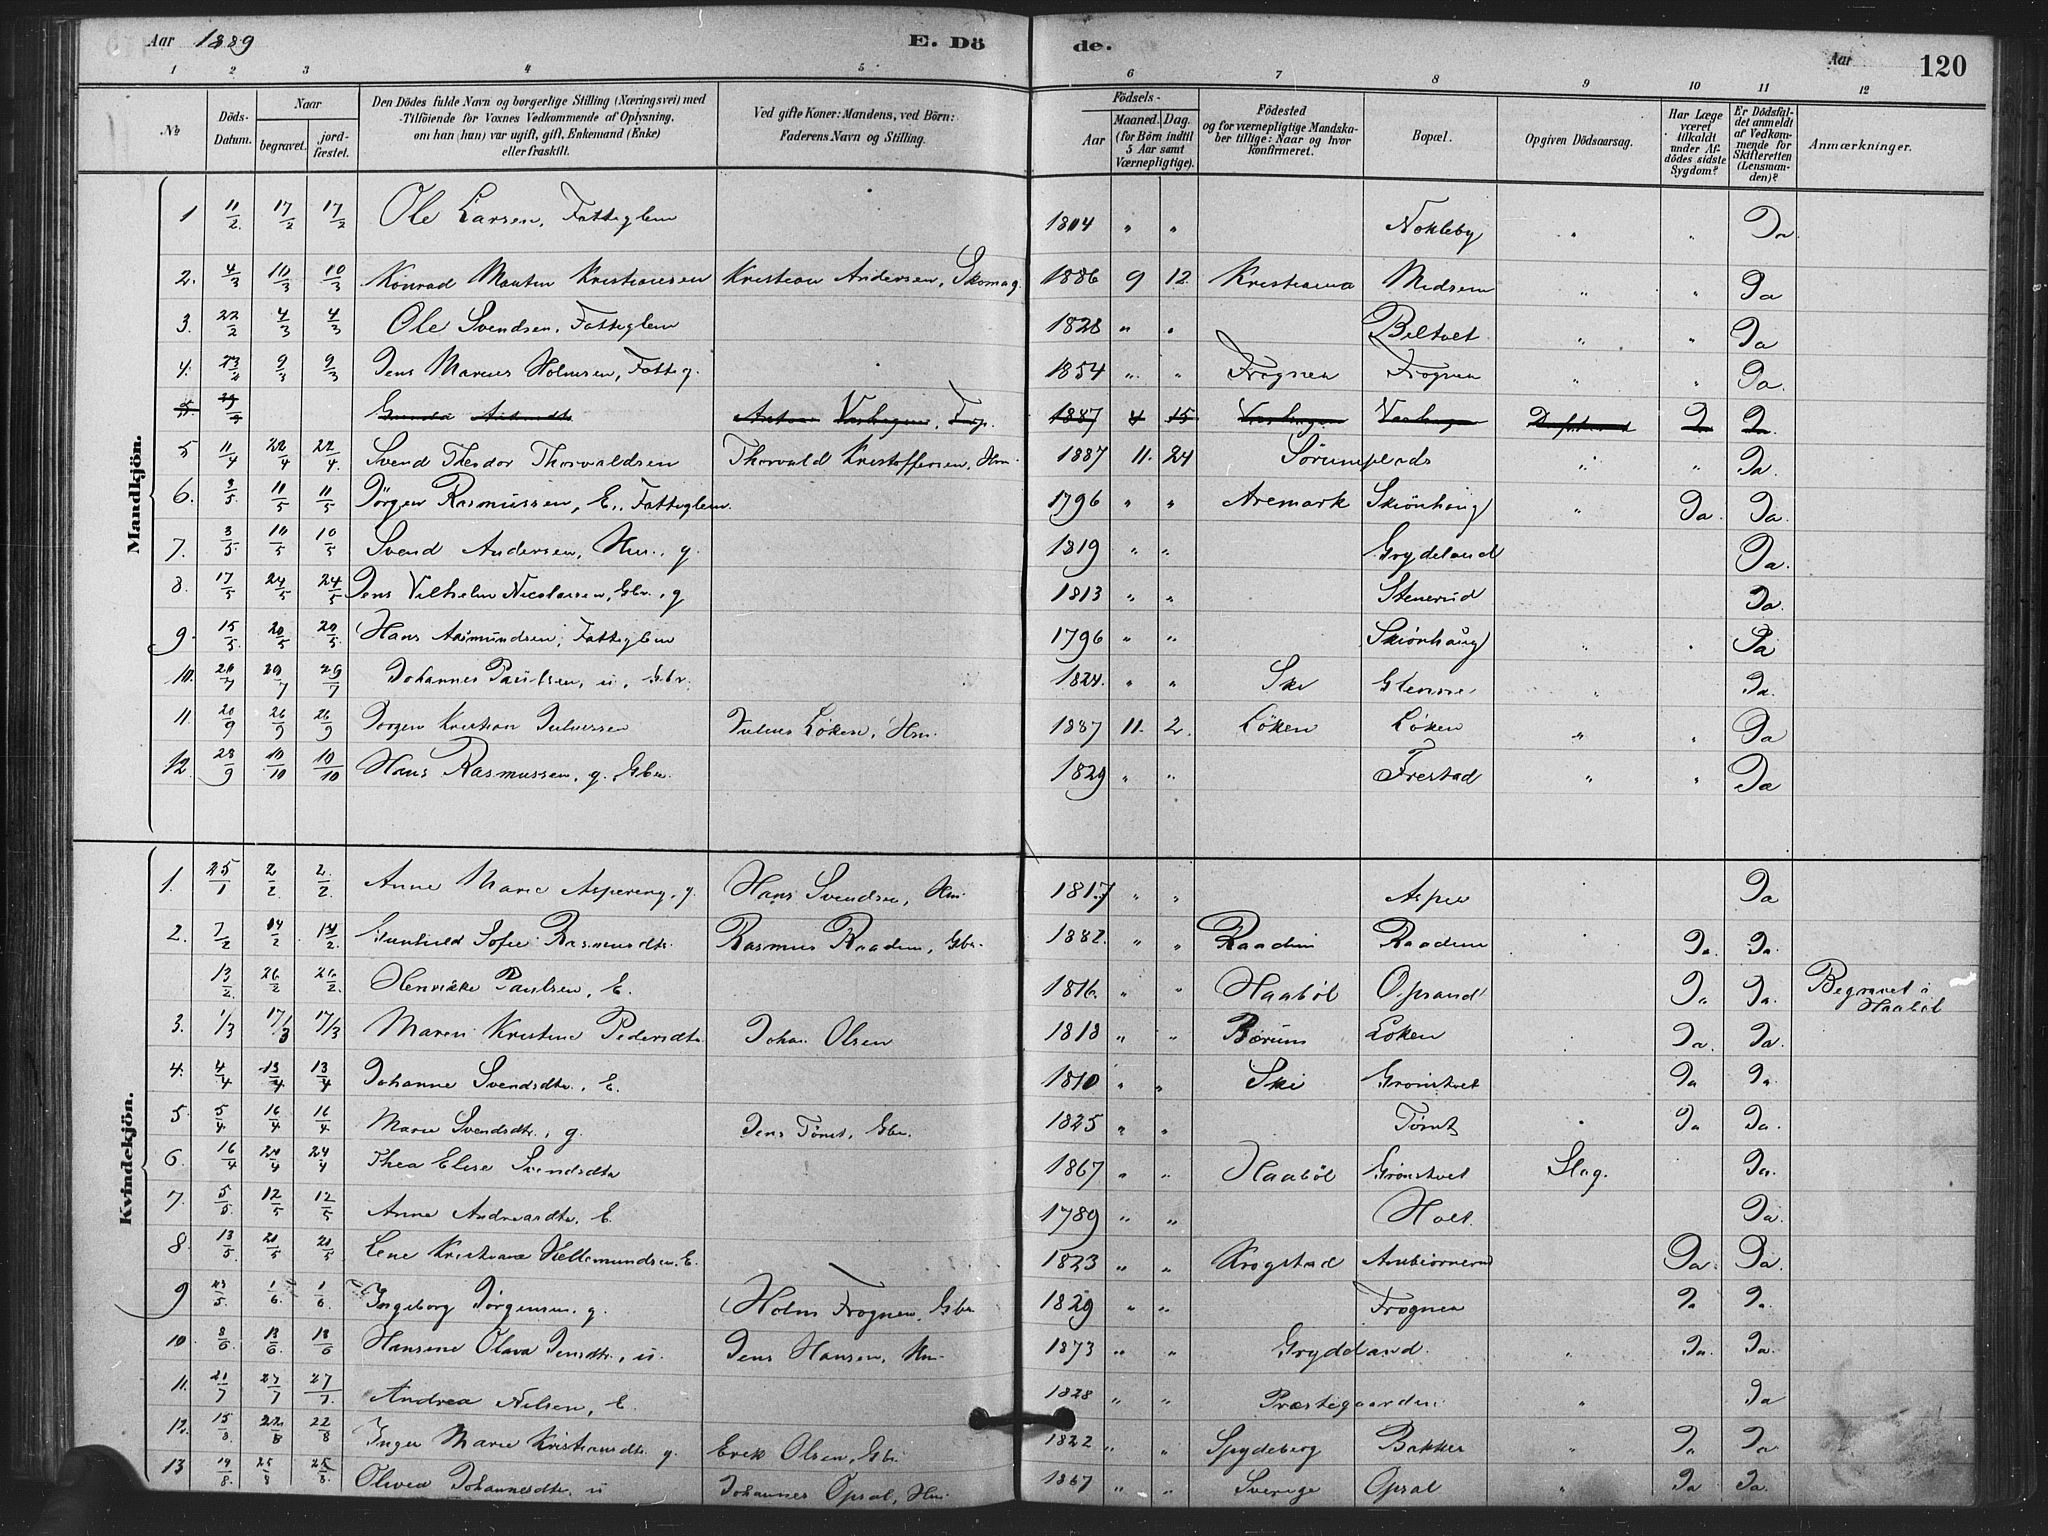 Aar 1889 E. Döde. Aar 120
1 2 3 4 5 6 7 8 9 10 11 12
No Döds-Datum. Naar begravet. jordfæstet. Den Dödes fulde Navn og borgerlige Stilling (Næringsvei) med Tilföiende for Voxnes Vedkommende af Oplysning, om han (hun) var ugift, gift, Enkemand (Enke) eller fraskilt. Ved gifte Koner: Mandens, ved Börn: Faderens Navn og Stilling. Födsels- Aar Maaned. Dag. (for Börn indtil 5 Aar samt Værnepligtige). Födested og for værnepligtige Mandskaber tillige: Naar og hvor konfirmeret. Bopæl. Opgiven Dödsaarsag. Har Læge været tilkaldt under Afdödes sidste Sygdom? Er Dödsfaldet anmeldt af Vedkommende for Skifteretten (Lensmanden)? Anmærkninger.
Mandkjön.
1 11/2 17/2 17/2 Ole Larsen, Fattiglem 1804 " " Nokleby " " Ja.
2. 4/3 10/3 10/3 Konrad Martin Kristiansen Kristian Andersen, Skomag. 1886 9 12 Kristiania Midsem " " Ja
3. 22/2 4/3 4/3 Ole Svendsen, Fattiglem 1828 " " Beltvet " " Ja
4. 23/2 9/3 9/3 Jens Marius Holmsen, Fattig. 1854 " " Frogner Frogner " " Ja.
5. 1887 4 15 Ja Ja.
5 11/4 22/4 22/4 Svend Theodor Thorvaldsen Thorvald Kristoffersen, Hm. 1887 11. 24 Sörumplads " " Ja.
6. 3/5 11/5 11/5 Jörgen Rasmussen, E., Fattiglem. 1796 " " Aremark Skiönhaug " Ja. Ja.
7. 3/5 10/5 10/5 Svend Andersen, Hm., g. 1819 " " Grydeland Ja.
8. 17/5 24/5 24/5 Jens Vilhelm Nicolaisen, Gbr., g 1813 " " Stenerud Ja.
9. 15/5 20/5 20/5 Hans Asmundsen, Fattiglem 1796 " " Skiönhaug " " Ja
10. 20/7 29/7 29/7 Johannes Paulsen, u., Gbr. 1824. " " Ski Glenne " Ja.
11 20/9 26/9 26/9 Jörgen Kristian Juliussen Julius Löken, Hm. 1887 11. 2. Löken Löken " " Ja
12. 28/9 10/10 10/10 Hans Rasmussen, g. Gbr. 1829 " " Frestad " " Ja
Kvindekjön.
1. 25/1 2/2 2/2 Anne Marie Aspereng, g. Hans Svendsen, Hm. 1817 " " Asper Ja
2. 7/2 14/2 14/2 Gunhild Sofie Rasmusdtr. Rasmus Raaden, Gbr. 1882. " " Raaden Raaden Ja. Ja.
13/2. 26/2 26/2. Henrikke Paulsen, E. 1816. " " Haaböl Opsand Ja Ja. Begravet i Haaböl
3. 1/3 17/3 17/3 Maren Kristine Pedersdtr. Johan Olsen 1818 " " Bærum Loken Ja. Ja.
4. 4/4 13/4 13/4 Johanne Svendsdtr., E. 1810 " " Ski Grönstvet Ja Ja.
5 5/4 16/4 16/4 Marie Svendsdtr., g. Jens Tömt, Gbr. 1825 " " Tömt Ja Ja.
6. 16/4 24/4 24/4 Thea Elise Svendsdtr 1867 " " Haaböl Grönstvet Slag. Ja.
7. 5/5 12/5 12/5 Anne Andreasdtr, E. 1789 " " Holt Ja.
8. 13/5 21/5 21/5 Lene Kristiane Hellemundsen, E. 1823 " " Krogstad Ambiörnerud Ja. Ja.
9 23/5 1/6 1/6 Ingeborg Jörgensen, g. Holm Frogner, Gbr. 1829 " " Frogner Ja Ja.
10 8/6 13/6 13/6 Hansine Olava Jensdtr., u. Jens Hansen, Hm. 1873 " " Grydeland. " Ja. Ja.
11. 21/7 27/7 27/7. Andrea Nilsen, E. 1828 " " Præstegaarden " Ja
12. 15/8 22/8 22/8 Inger Marie Kristiansdtr. g. Erik Olsen, Gbr. 1822 " " Spydeberg Bakker " Ja Ja
13 19/8. 25/8 25/8. Olivia Johannesdtr. u Johannes Opsal, Hm. 1867 " " Sverige Opsal " Ja Ja.